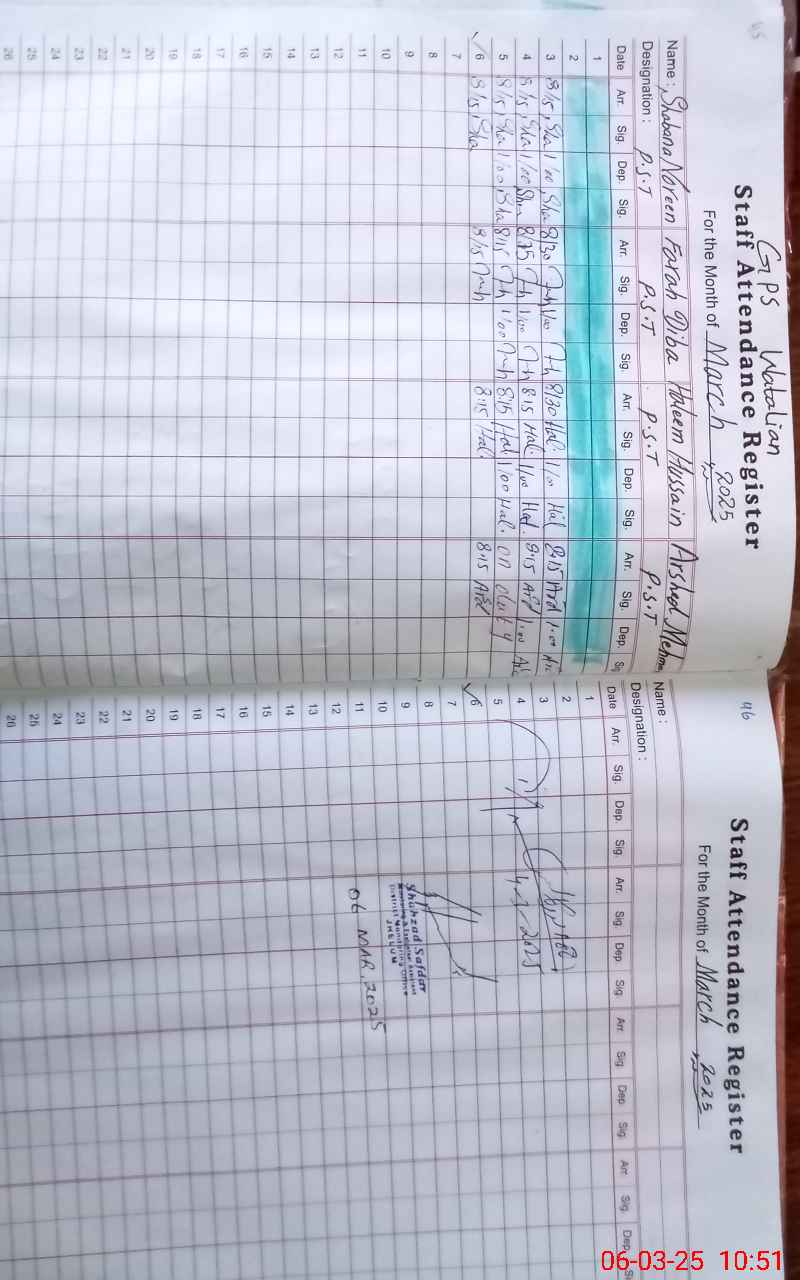 45
GPS Watalian
Staff Attendance Register
For the Month of March 2025
Name : Shabana Noreen Farah Diba Haleem Hussain Arshad Mehmo
Designation : P.S.T P.S.T P.S.T P.S.T
Date Arr. Sig. Dep. Sig. Arr. Sig. Dep. Sig. Arr. Sig. Dep. Sig. Arr. Sig. Dep. Sig
1
2
3 8/15, Sha 1/00, Sha 8/30 1/00 8/30 Hal. 1/00 Hal 8:15 Ard 1:00
4 8/15, Sha 1/00 Sha 8/15 1/00 8:15 Hal. 1/00 Hal. 8:15 Ard 1:00
5 8/15, Sha 1/00, Sha 8/15 1/00 8:15 Hal 1/00 Hal. on duty
6 8/15, Sha 8/15 8:15 Hal. 8:15 Ard
7
8
9
10
11
12
13
14
15
16
17
18
19
20
21
22
23
24
25
26
46
Staff Attendance Register
For the Month of March 2025
Name :
Designation :
Date Arr. Sig. Dep. Sig. Arr. Sig. Dep. Sig. Arr. Sig. Dep. Sig. Arr. Sig. Dep. S
1
2
3
4 4-3-2025
5
6
7
8
Shahzad Safdar
Monitoring & Evaluation Assistant
District Monitoring Office
JHELUM
06 MAR. 2025
9
10
11
12
13
14
15
16
17
18
19
20
21
22
23
24
25
26
06-03-25 10:51